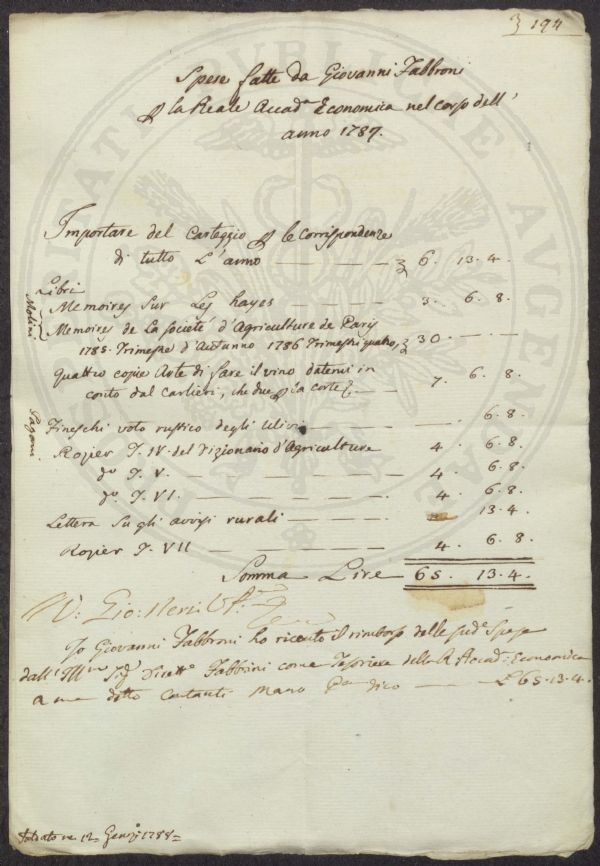 3 194
Spese fatte da Giovanni Fabbroni
p la Reale Accad.a Economica nel corso dell'
anno 1787.
Importare del Carteggio p le corrispondenze
di tutto L'anno — — — — 6. 13. 4.
Libri
Molini
Memoires Sur Les hayes — — — 3. 6. 8.
Memoires de La Societé d'Agriculture de Paris
1785. Trimestre d'Autunno 1786 Trimestri quatro, 30 — —
quattro copie Arte di fare il vino datemi in
conto dal Carlieri, che due p la corte — — 7. 6. 8.
Pagani
Fineschi voto rustico degli Ulivi — — — 6. 8.
Rozier T. IV del Dizionario d'Agriculture 4. 6. 8.
do T. V. — — — — 4. 6. 8.
do T. VI. — — — — 4. 6. 8.
Lettera Sugli avvisi rurali — — — 13. 4.
Rozier T. VII — — — — 4. 6. 8.
Somma Lire 65. 13. 4.
V: Gio: Neri
Io Giovanni Fabbroni ho ricevuto il rimborso delle sud.e Spese
dall' Ill.mo Sig. Dirett.e Fabbrini come Tesoriere della R. Accad. Economica
a me detto contanti mano p.a dico — — £ 65. 13. 4.
12 Genn. 1788
PUBLICAE AVGENDAE